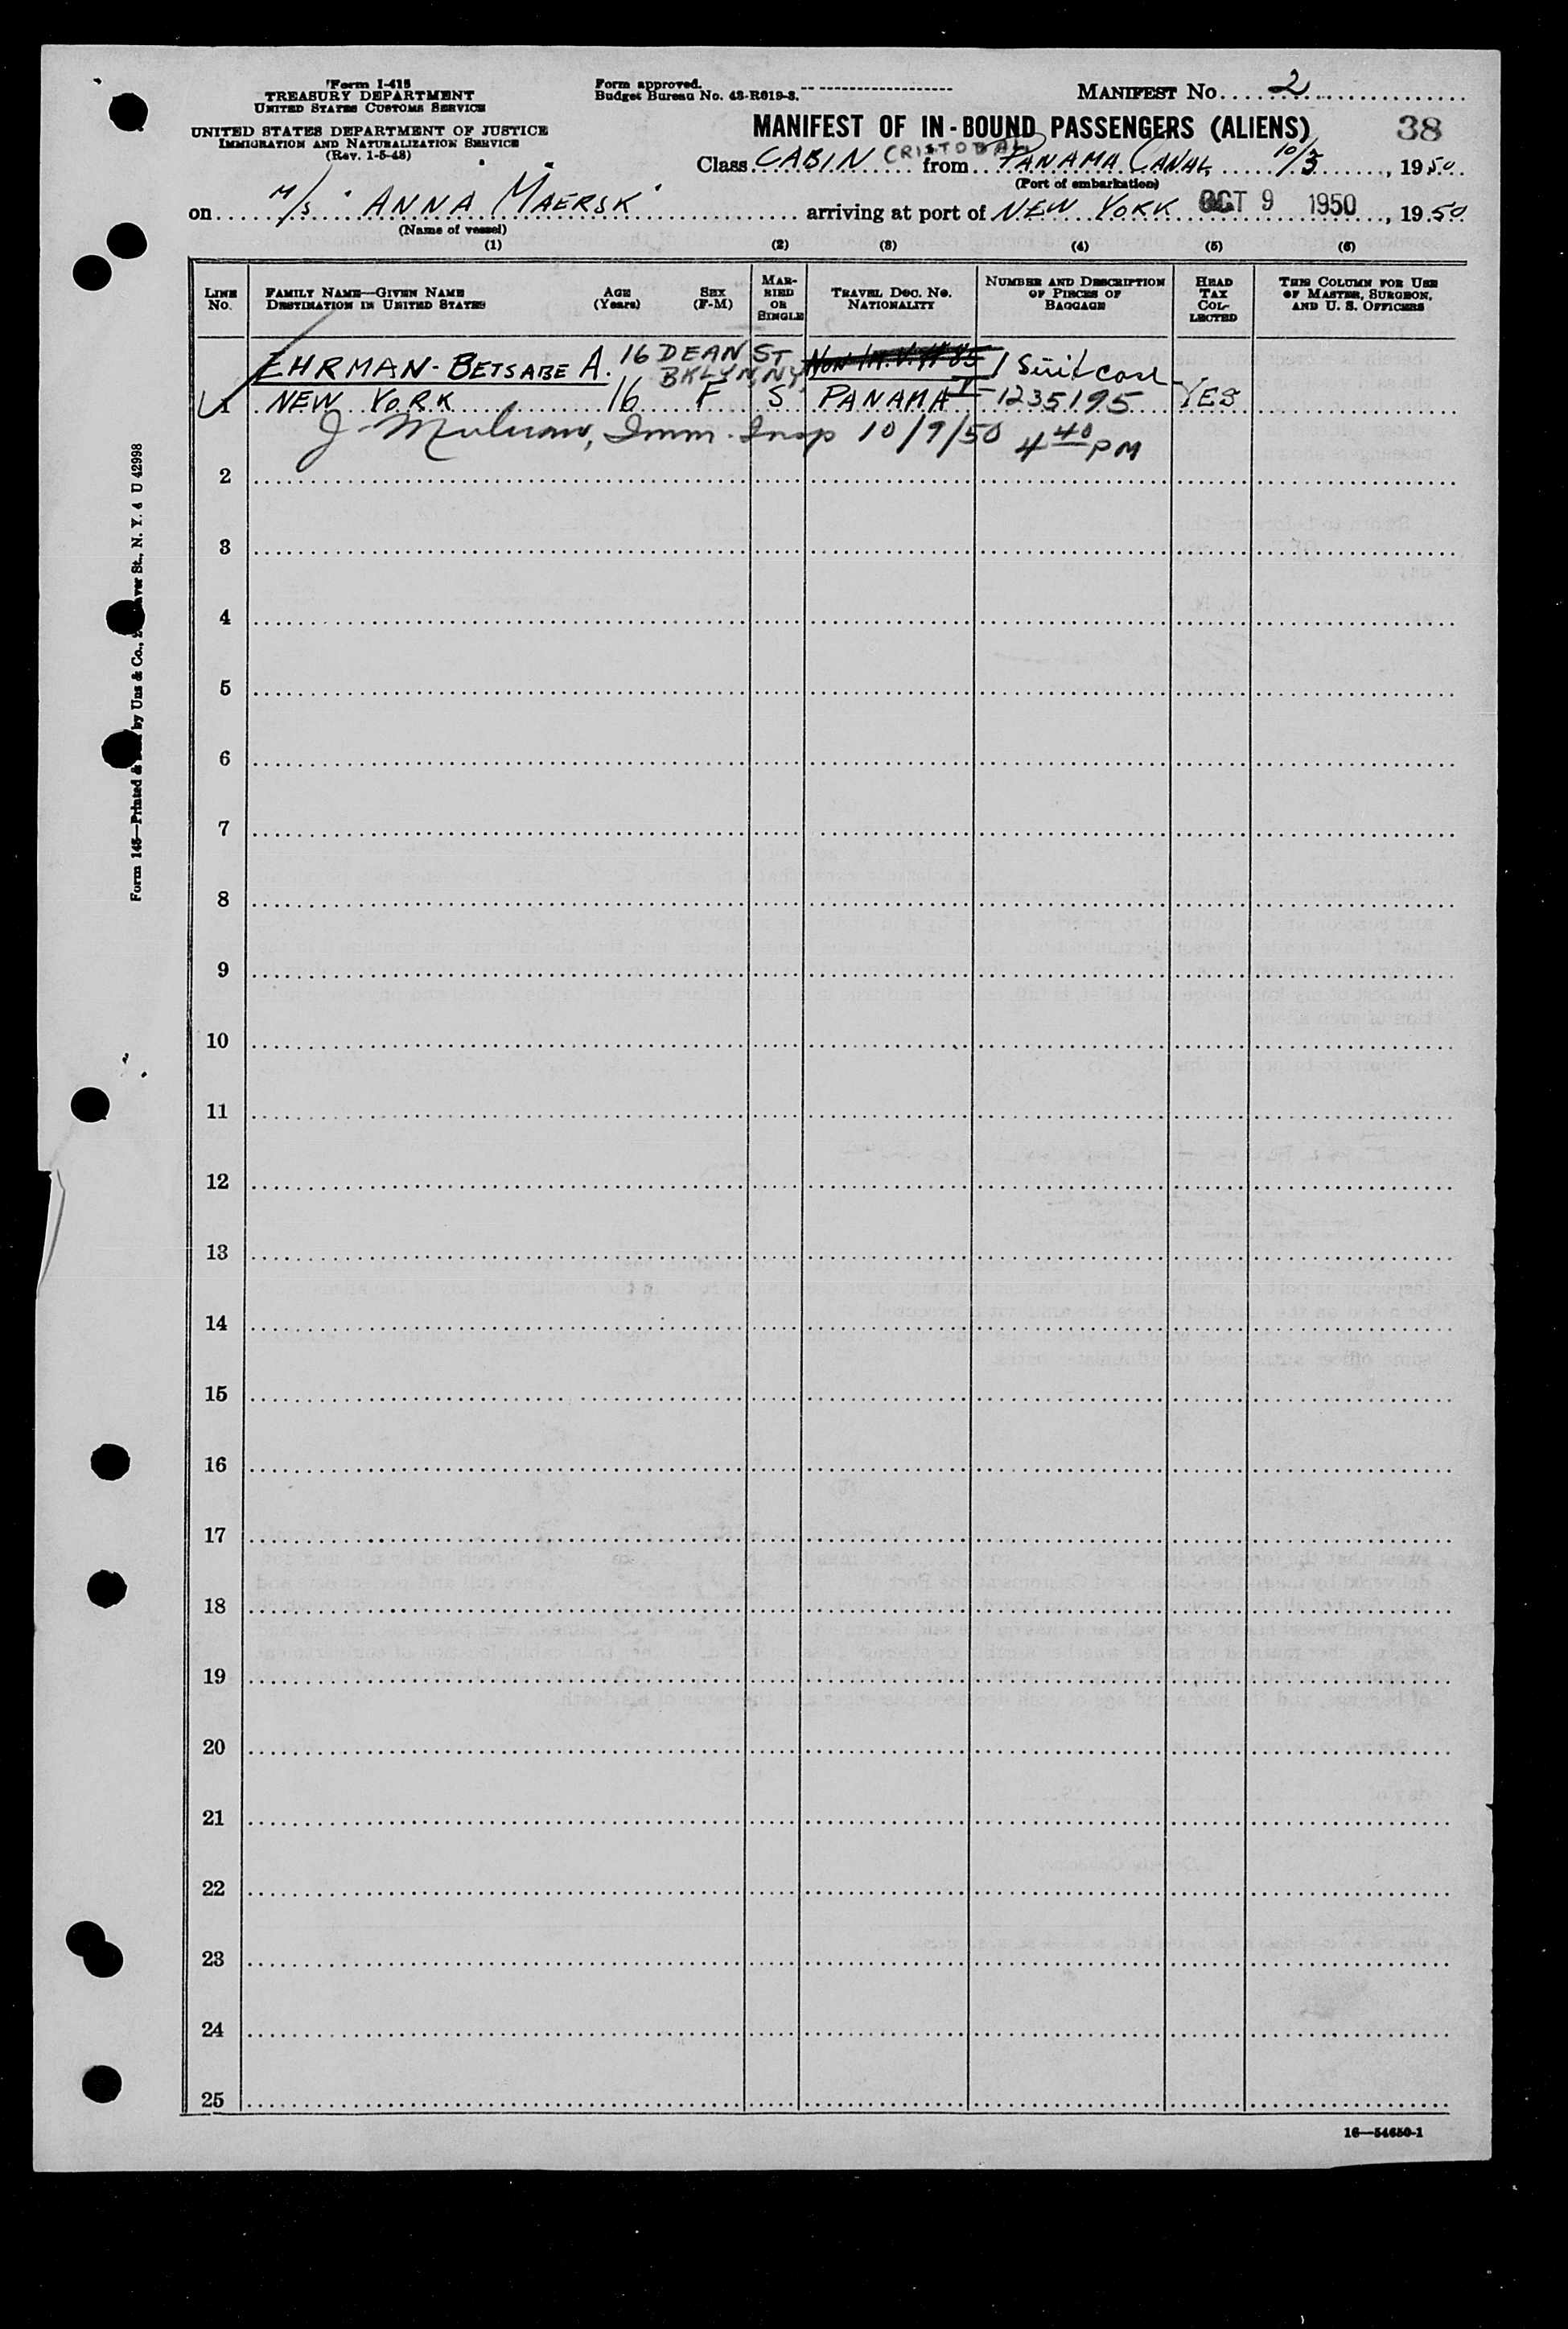 Form I-415
TREASURY DEPARTMENT
UNITED STATES CUSTOMS SERVICE
UNITED STATES DEPARTMENT OF JUSTICE
IMMIGRATION AND NATURALIZATION SERVICE
(Rev. 1-5-48)
Form approved.
Budget Bureau No. 43-R019-3.
MANIFEST No. 2
MANIFEST OF IN-BOUND PASSENGERS (ALIENS) 38
CRISTOBAL
Class CABIN from PANAMA CANAL 10/3, 1950
(Port of embarkation)
on M/S "ANNA MAERSK" arriving at port of NEW YORK OCT 9 1950, 1950
(Name of vessel)
(1) (2) (3) (4) (5) (6)
LINE No. FAMILY NAME—GIVEN NAME DESTINATION IN UNITED STATES AGE (Years) SEX (F-M) MARRIED OR SINGLE TRAVEL DOC. No. NATIONALITY NUMBER AND DESCRIPTION OF PIECES OF BAGGAGE HEAD TAX COLLECTED THIS COLUMN FOR USE OF MASTER, SURGEON, AND U. S. OFFICERS
EHRMAN - BETSABE A. 16 DEAN ST NON IM. V. # 85 1 Suitcase
BKLYN, NY
1 NEW YORK 16 F S PANAMA I-1235195 YES
J. Imm. Insp 10/9/50 4 40 PM
2
3
4
5
6
7
8
9
10
11
12
13
14
15
16
17
18
19
20
21
22
23
24
25
16—54650-1
Form 145—Printed & by Uns & Co., St., N. Y. 4 U 42998